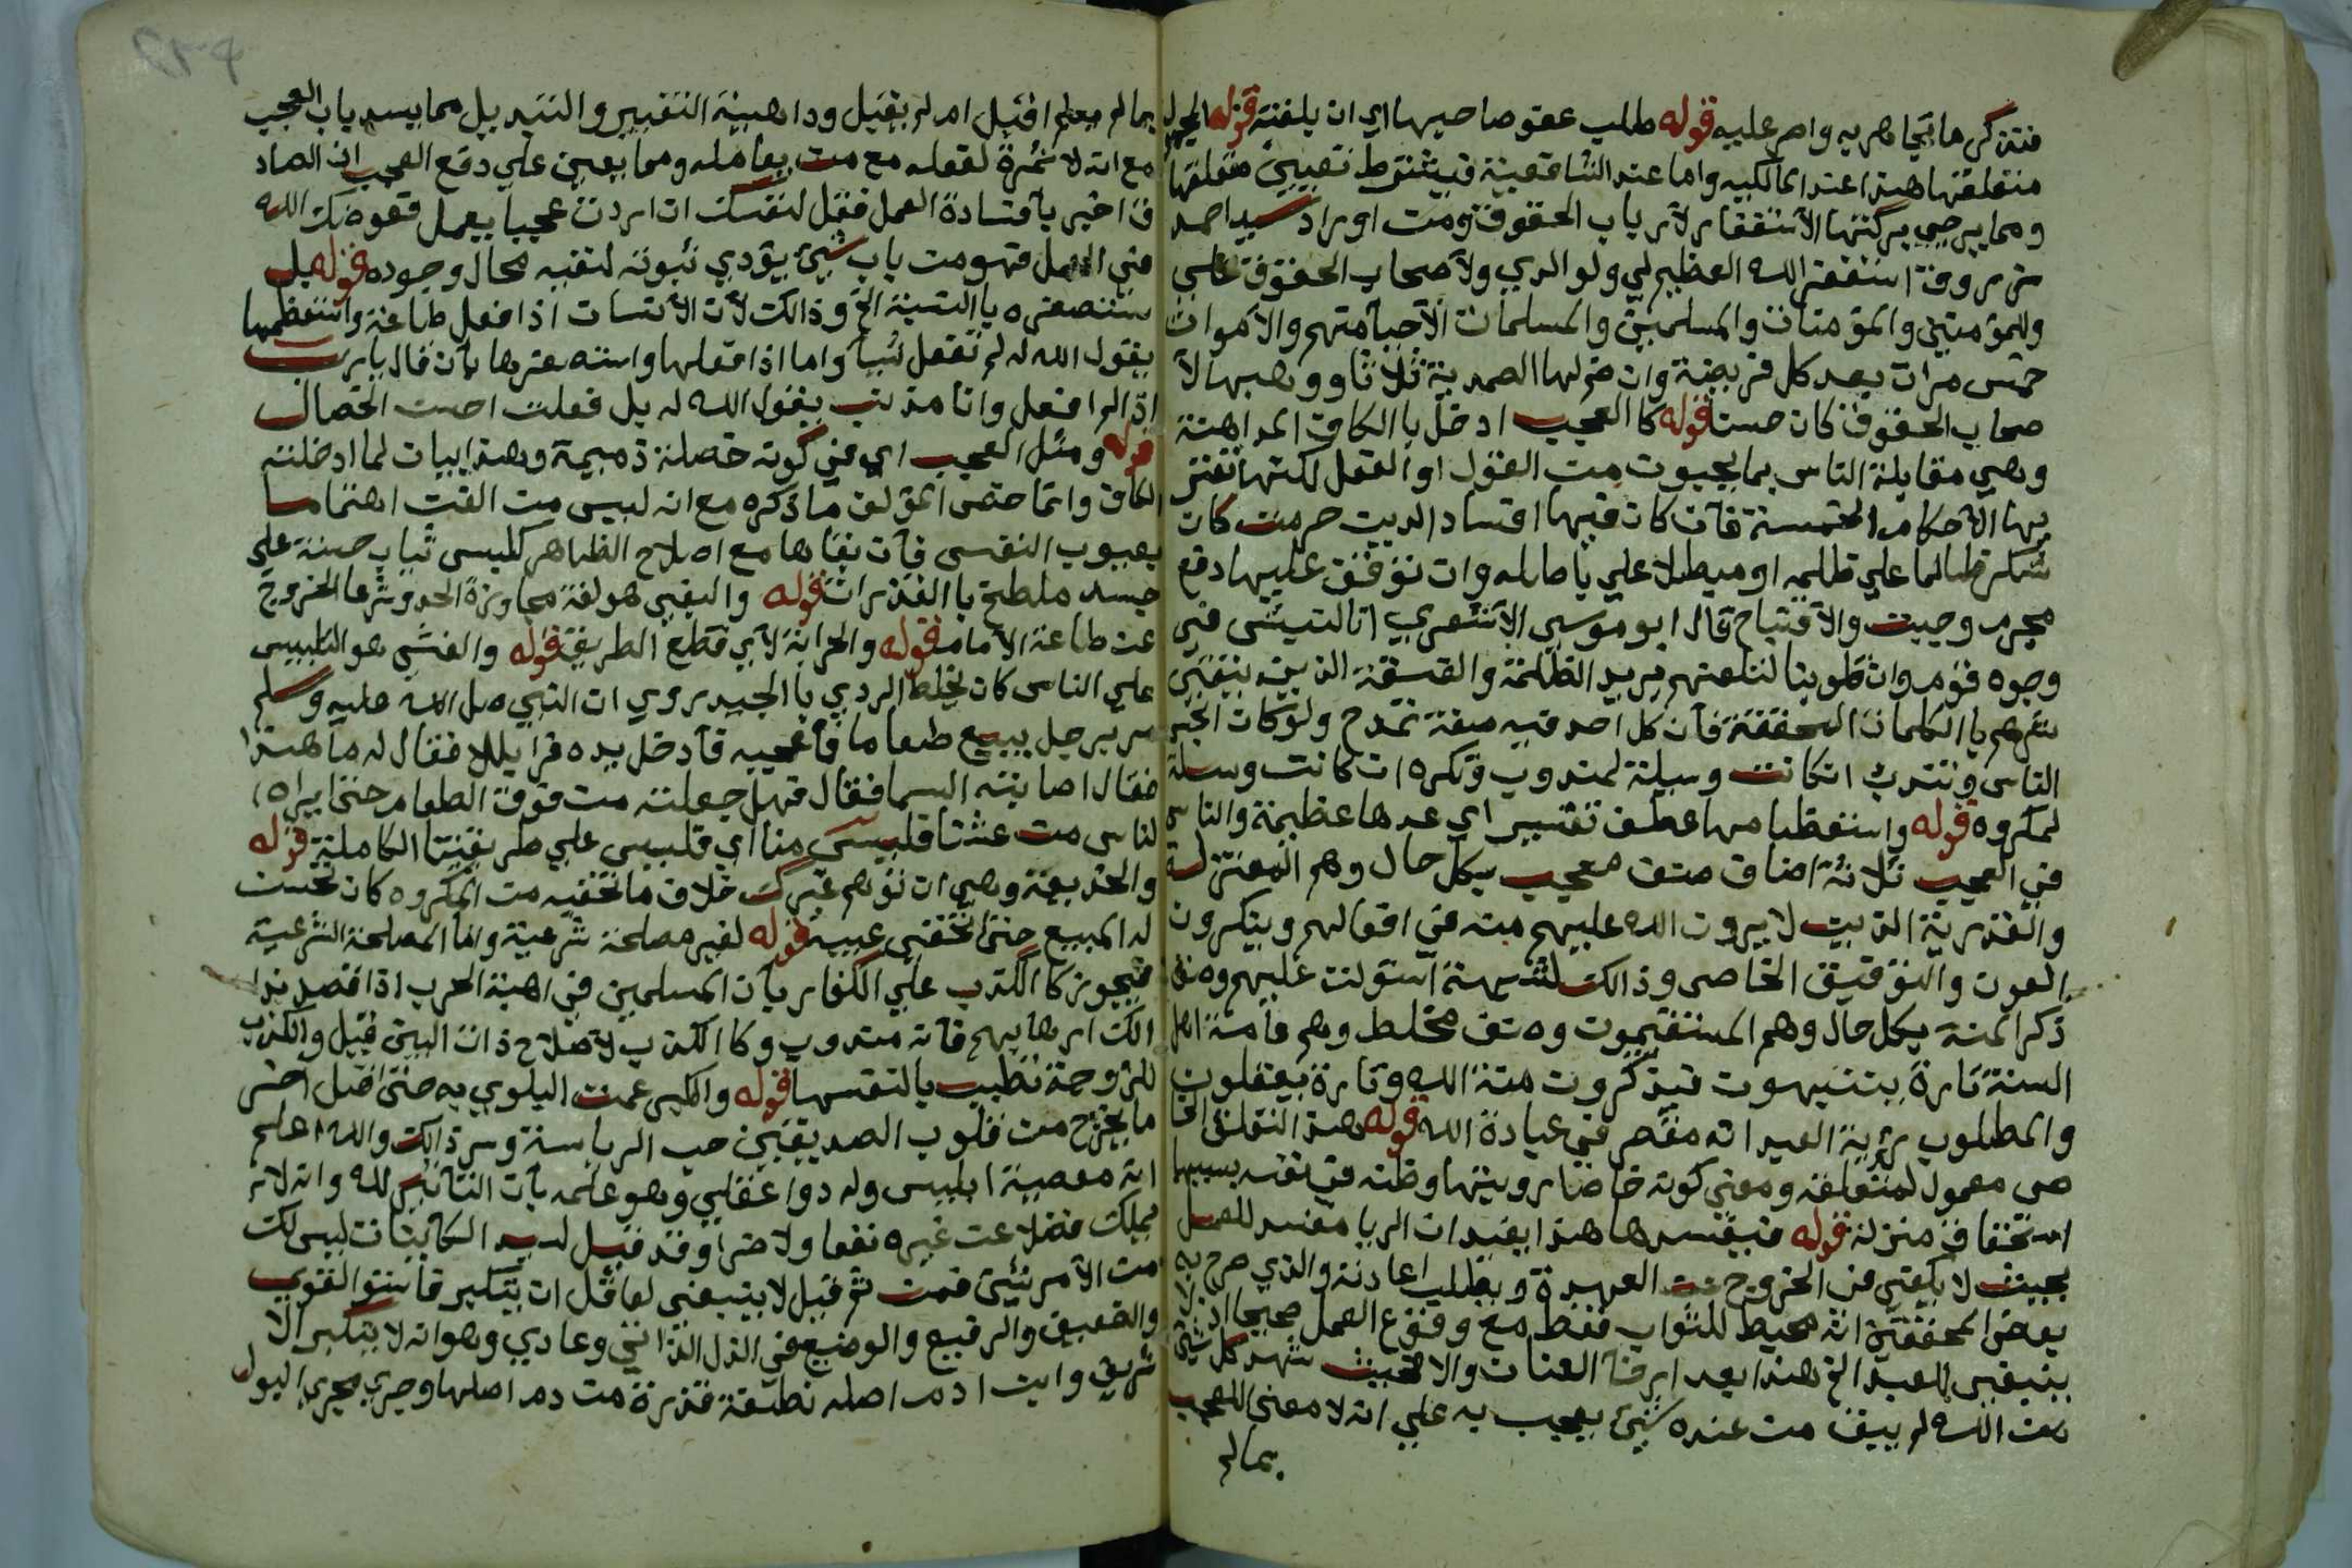 فتذكر ما تجاهر به واصر عليه قوله طلب عفو صاحبها اي ان بلغته قوله الجهل
متعلقها هذا عند المالكيه واما عند الشافعية فيشترط تعيين متعلقها
ومما يرجي بركتها الاستغفار لارباب الحقوق ومن اوراد سيد احمد
زروق استغفر الله العظيم لي ولوالدي ولاصحاب الحقوق علي
وللمؤمنين والمؤمنات والمسلمين والمسلمات الاحيا منهم والاموات
خمس مرات بعد كل فريضة وان ضم لها الصمدية ثلاثا ووهبها لا
صحاب الحقوق كان حسن قوله كالعجب ادخل بالكاف المداهنة
وهي مقابلة الناس بما يحبون من القول او الفعل لكنها تعتر
يها الاحكام الخمسة فان كان فيها افساد الدين حرمت كان
شكر ظالما علي ظلمه او مبطلا علي باطله وان توقف عليها دفع
محرم وجبت والافتباح قال ابو موسي الاشعري انا لنبش في
وجوه قوم وان قلوبنا لتلعنهم يريد الظلمة والفسقة الذين يتقي
شرهم بالكلمات المحققة فان كل احد فيه صفة تمدح ولو كان اخبر
الناس وتندب ان كانت وسيلة لمندوب وتكره ان كانت وسيلة
لمكروه قوله واستعظامها عطف تفسير اي عدها عظيمة والناس
في العجب ثلاثة اصناف صنف معجب بكل حال وهم المعتزلة
والقدرية الذين لا يرون الله عليهم منة في افعالهم وينكرون
العون والتوفيق الخاص وذالك لشبهة استولت عليهم وصنف
ذكر المنة بكل حال وهم المستقيمون وصنف مخلط وهم عامة اهل
السنة تارة يتنبهون فيذكرون منة الله وتارة يغفلون
والمطلوب رؤية العبد انه مقصر في عبادة الله قوله هذا التعلق الخا
ص معمول لمتعلقه ومعني كونه خاصا رويتها وظنه في نفسه بسببها
استحقاق منزلة قوله فيفسدها هذا يفيد ان الريا مفسد للعمل
بحيث لا يكفي في الخروج عن العهدة ويطلب اعادته والذي صرح به
بعض المحققين انه محبط للثواب فقط مع وقوع العمل صحيحا اذ لا
ينبغي للعبد الخ هذا بعد ارخا العنان والا فحيث شهد كل شي
من الله لم يبق من عنده شي يعجب به علي انه لا معني للعجب
بما لم
بما لم يعلم اقبل ام لم يقبل ودا هينة التغيير والتبديل مما يسد باب العجب
مع انه لا ثمرة لفعله مع من يعامله ومما يعين علي دفع العجب ان الصاد
ق اخبر بافساده العمل فقل لنفسك ان اردت عجبا بعمل فعوضك الله
في العمل فهو من باب شي يؤدي ثبوته لنفيه محال وجوده قوله بل
ستصغره بالنسبة الخ وذالك لان الانسان اذا فعل طاعة واستعظمها
يقول الله له لم تفعل شيا واما اذا فعلها واستصغرها بان قال يا رب
اني لم افعل وانا مذنب يقول الله له بل فعلت احسن الخصال
قوله ومثل العجب اي في كونه خصلة ذميمة وهذا بيان لما ادخلته
الكاف وانما خص المؤلف ما ذكره مع انه ليس من الفن اهتماما
بعيوب النفس فان بقاها مع اصلاح الظاهر كلبس ثياب حسنة علي
جسد ملطخ بالقذرات قوله والبغي هو لغة مجاوزة الحد وشرعا الخروج
عن طاعة الامام قوله والحرابة لاي قطع الطريق قوله والغش هو التلبيس
علي الناس كان يخلط الردي بالجيد روي ان النبي صل الله عليه وسلم
مر برجل يبيع طعاما فاعجبه فادخل يده فراي بللا فقال له ما هذا
فقال اصابته السما فقال فهل جعلته من فوق الطعام حتي يراه
الناس من غشنا فليس منا اي فليس علي طريقتنا الكاملية قوله
والخديعة وهي ان توهم غيرك خلاف ما تخفيه من المكروه كان تحسن
له المبيع حتي تخفي عيبه قوله لغير مصلحة شرعية واما المصلحة الشرعية
فيجوز كالكذب علي الكفار بان المسلمين في اهبة الحرب اذا قصد بذا
الك ارهابهم فانه مندوب وكالكذب لاصلاح ذات البين قيل والكذب
للزوجة تطييبا لنفسها قوله والكبر عمت البلوي به حتي قيل اخر
ما يخرج من قلوب الصديقين حب الرياسة وسر ذالك والله اعلم
انه معصية ابليس وله دوا عقلي وهو علمه بان التاثير لله وانه لا
يملك فضلا عن غيره نفعا ولا ضرا وقد قيل لسيد الكاينات ليس لك
من الامر شي فمن ثم قيل لا ينبغي لعاقل ان يتكبر فاستو القوي
والضعيف والرفيع والوضيع في الذل الذاتي وعادي وهوانه لا يتكبر الا
شريف وابن ادم اصله نطفة قذرة من دم اصلها وجري مجري البول